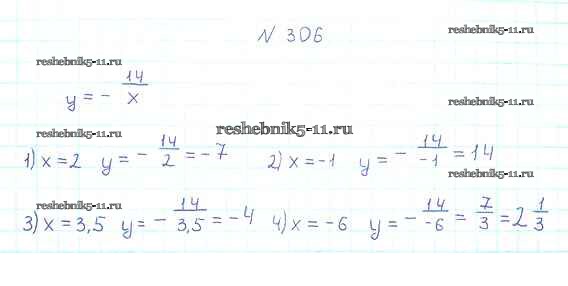 N 306
reshebnik5-11.ru
reshebnik5-11.ru
y = - 14/x
reshebnik5-11.ru
reshebnik5-11.ru
reshebnik5-11.ru
1) x = 2 y = - 14/2 = -7 2) x = -1 y = - 14/-1 = 14
reshebnik5-11.ru
reshebnik5-11.ru
3) x = 3,5 y = - 14/3,5 = -4 4) x = -6 y = - 14/-6 = 7/3 = 2 1/3